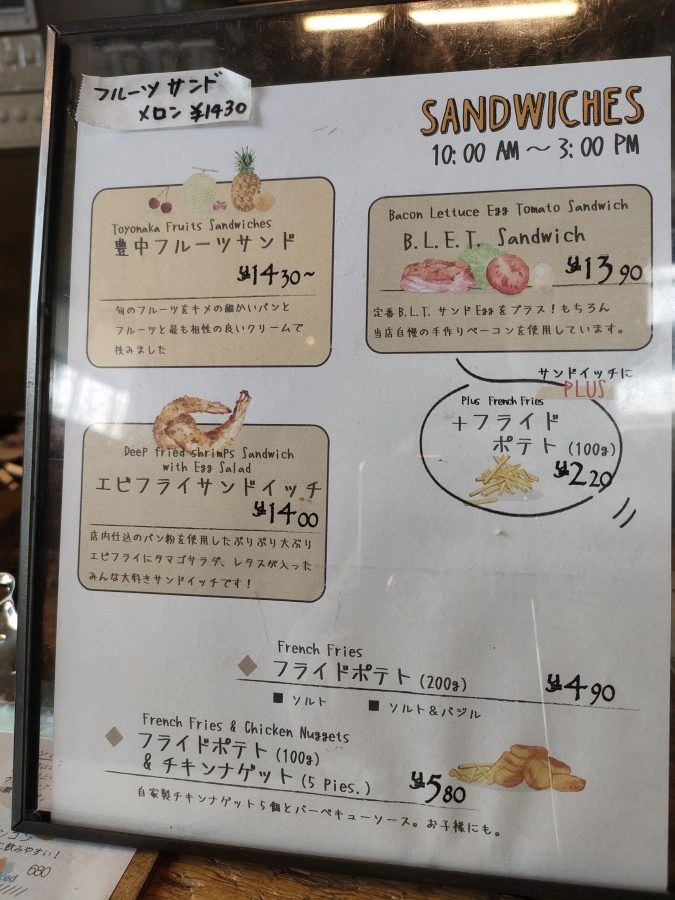 フルーツ サンド
メロン ¥1430
SANDWICHES
10:00 AM ～ 3:00 PM
Toyonaka Fruits Sandwiches
豊中フルーツサンド
¥1430～
旬のフルーツをキメの細かいパンと
フルーツと最も相性の良いクリームで
挟みました
Bacon Lettuce Egg Tomato Sandwich
B.L.E.T. Sandwich
¥1390
定番B.L.T.サンドEggをプラス！もちろん
当店自慢の手作りベーコンを使用しています。
サンドイッチに
PLUS
Plus French Fries
＋フライド
ポテト (100g)
¥220
Deep fried shrimps Sandwich
with Egg Salad
エビフライサンドイッチ
¥1400
店内仕込のパン粉を使用したぷりぷり大ぶり
エビフライにタマゴサラダ、レタスが入った
みんな大好きサンドイッチです！
French Fries
フライドポテト (200g)
¥490
■ ソルト ■ ソルト＆バジル
French Fries & Chicken Nuggets
フライドポテト (100g)
& チキンナゲット (5 Pies.)
¥580
自家製チキンナゲット5個とバーベキューソース。お子様にも。
飲みやすい！
680